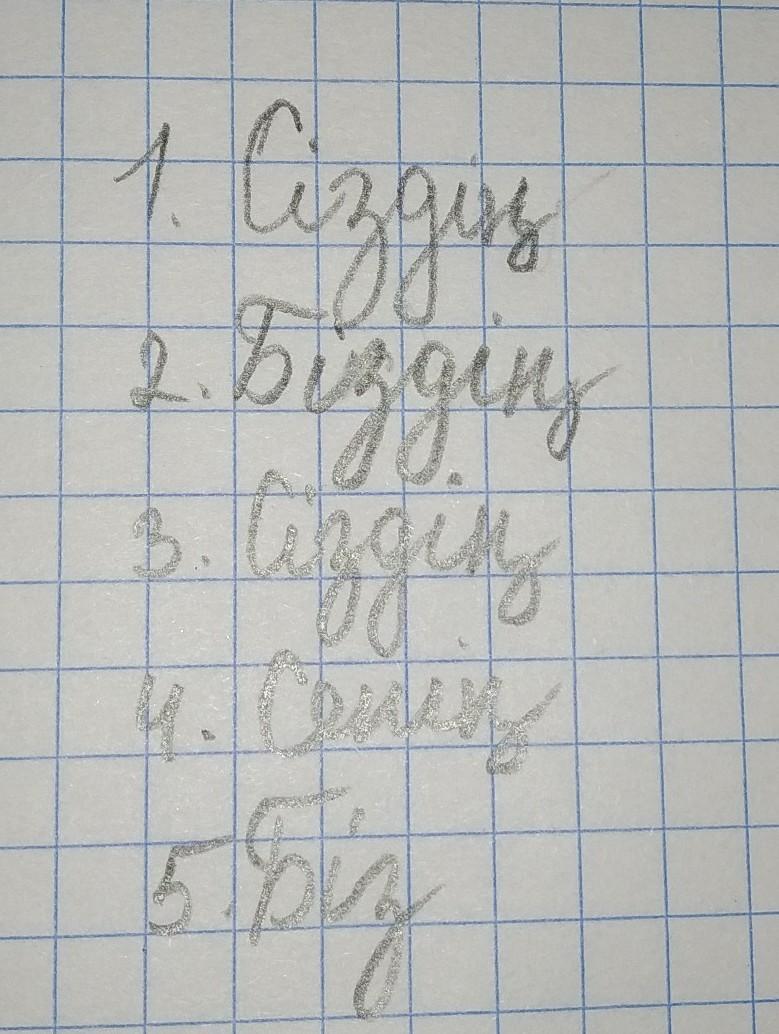 1. Сіздің
2. Біздің
3. Сіздің
4. Сенің
5. Біз